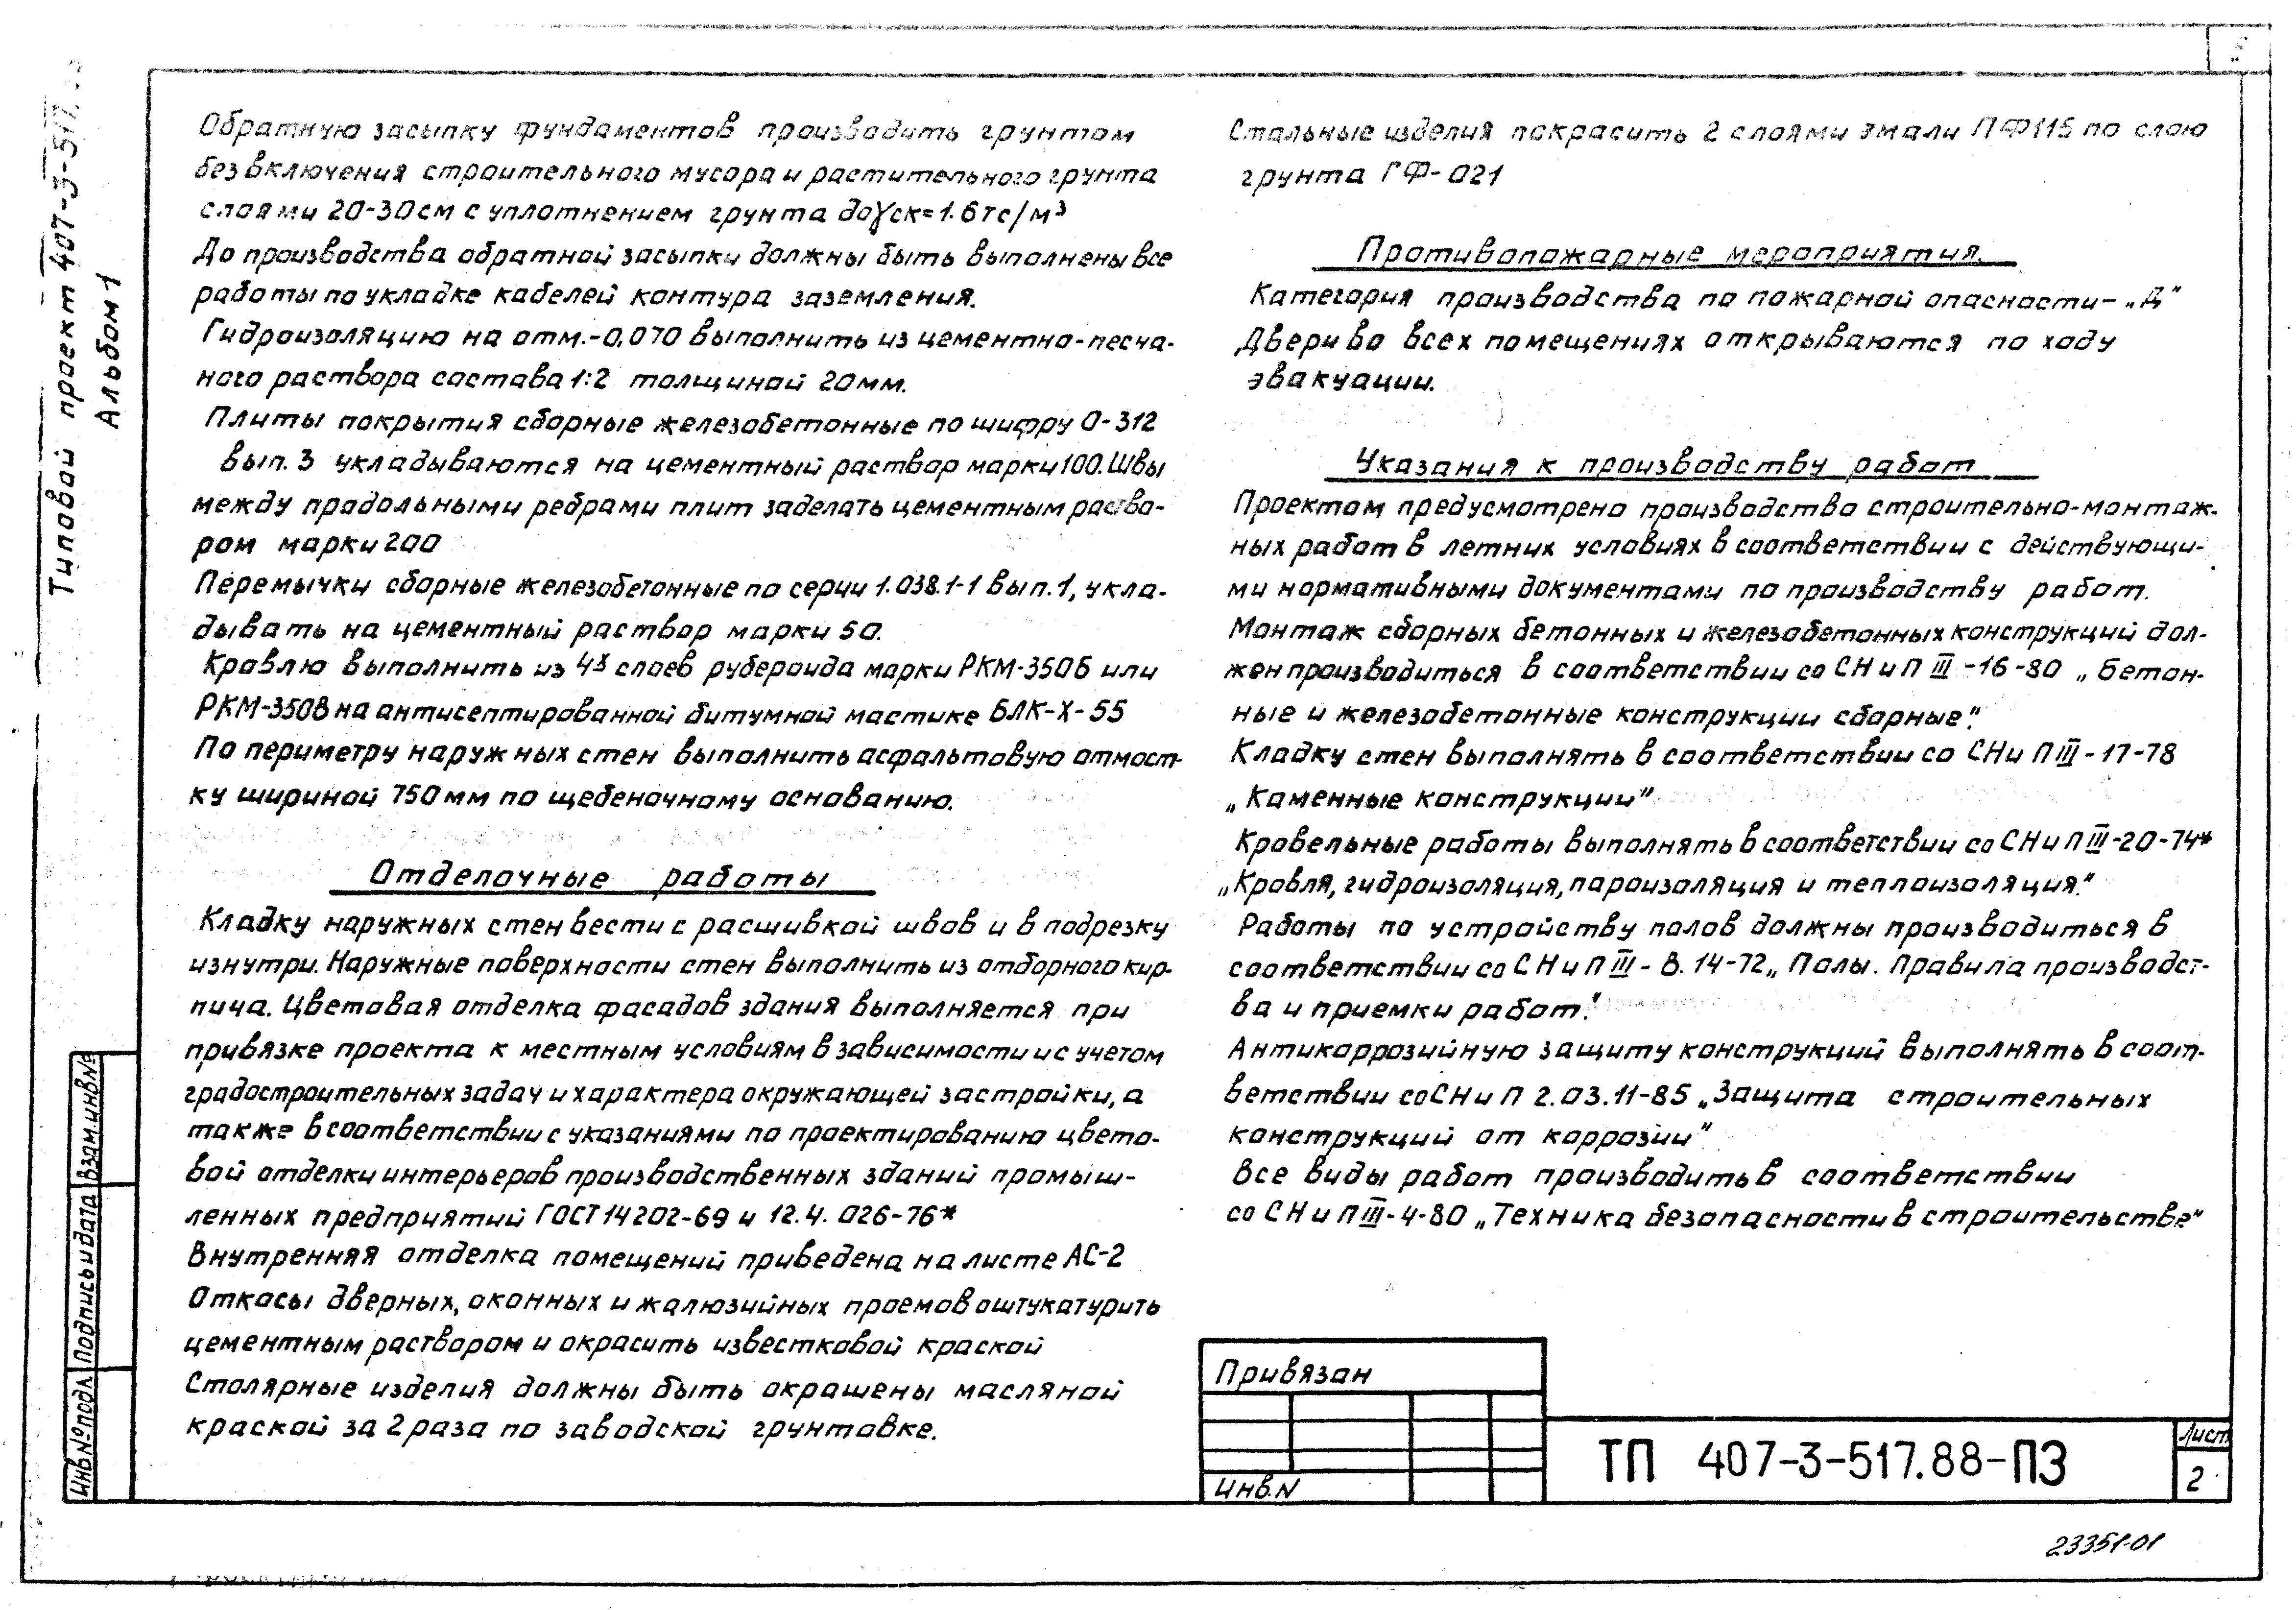 Обратную засыпку фундаментов производить грунтом
без включения строительного мусора и растительного грунта
слоями 20-30см с уплотнением грунта до γск=1.6тс/м³
До производства обратной засыпки должны быть выполнены все
работы по укладке кабелей контура заземления.
Гидроизоляцию на отм.-0,070 выполнить из цементно-песча-
ного раствора состава 1:2 толщиной 20мм.
Плиты покрытия сборные железобетонные по шифру 0-312
вып. 3 укладываются на цементный раствор марки 100. Швы
между продольными ребрами плит заделать цементным раство-
ром марки 200
Перемычки сборные железобетонные по серии 1.038.1-1 вып.1, укла-
дывать на цементный раствор марки 50.
Кровлю выполнить из 4х слоев рубероида марки РКМ-350Б или
РКМ-350В на антисептированной битумной мастике БЛК-Х-55
По периметру наружных стен выполнить асфальтовую отмост-
ку шириной 750мм по щебеночному основанию.
Отделочные работы
Кладку наружных стен вести с расшивкой швов и в подрезку
изнутри. Наружные поверхности стен выполнить из отборного кир-
пича. Цветовая отделка фасадов здания выполняется при
привязке проекта к местным условиям в зависимости и с учетом
градостроительных задач и характера окружающей застройки, а
также в соответствии с указаниями по проектированию цвето-
вой отделки интерьеров производственных зданий промыш-
ленных предприятий ГОСТ 14202-69 и 12.4.026-76*
Внутренняя отделка помещений приведена на листе АС-2
Откосы дверных, оконных и жалюзийных проемов оштукатурить
цементным раствором и окрасить известковой краской
Столярные изделия должны быть окрашены масляной
краской за 2 раза по заводской грунтовке.
Стальные изделия покрасить 2 слоями эмали ПФ115 по слою
грунта ГФ-021
Противопожарные мероприятия.
Категория производства по пожарной опасности - „Д"
Двери во всех помещениях открываются по ходу
эвакуации.
Указания к производству работ
Проектом предусмотрено производство строительно-монтаж-
ных работ в летних условиях в соответствии с действующи-
ми нормативными документами по производству работ.
Монтаж сборных бетонных и железобетонных конструкций дол-
жен производиться в соответствии со СНиП III-16-80 „Бетон-
ные и железобетонные конструкции сборные".
Кладку стен выполнять в соответствии со СНиП III-17-78
„Каменные конструкции"
Кровельные работы выполнять в соответствии со СНиП III-20-74*
„Кровля, гидроизоляция, пароизоляция и теплоизоляция."
Работы по устройству полов должны производиться в
соответствии со СНиП III-В.14-72 „Полы. Правила производст-
ва и приемки работ."
Антикоррозийную защиту конструкций выполнять в соот-
ветствии со СНиП 2.03.11-85 „Защита строительных
конструкций от коррозии"
Все виды работ производить в соответствии
со СНиП III-4-80 „Техника безопасности в строительстве."
Типовой проект 407-3-517.
Альбом 1
Взам.инв№
Подпись и дата
Инв№подл.
Привязан
Инв.N
ТП 407-3-517.88-ПЗ
Лист
2
23351-01